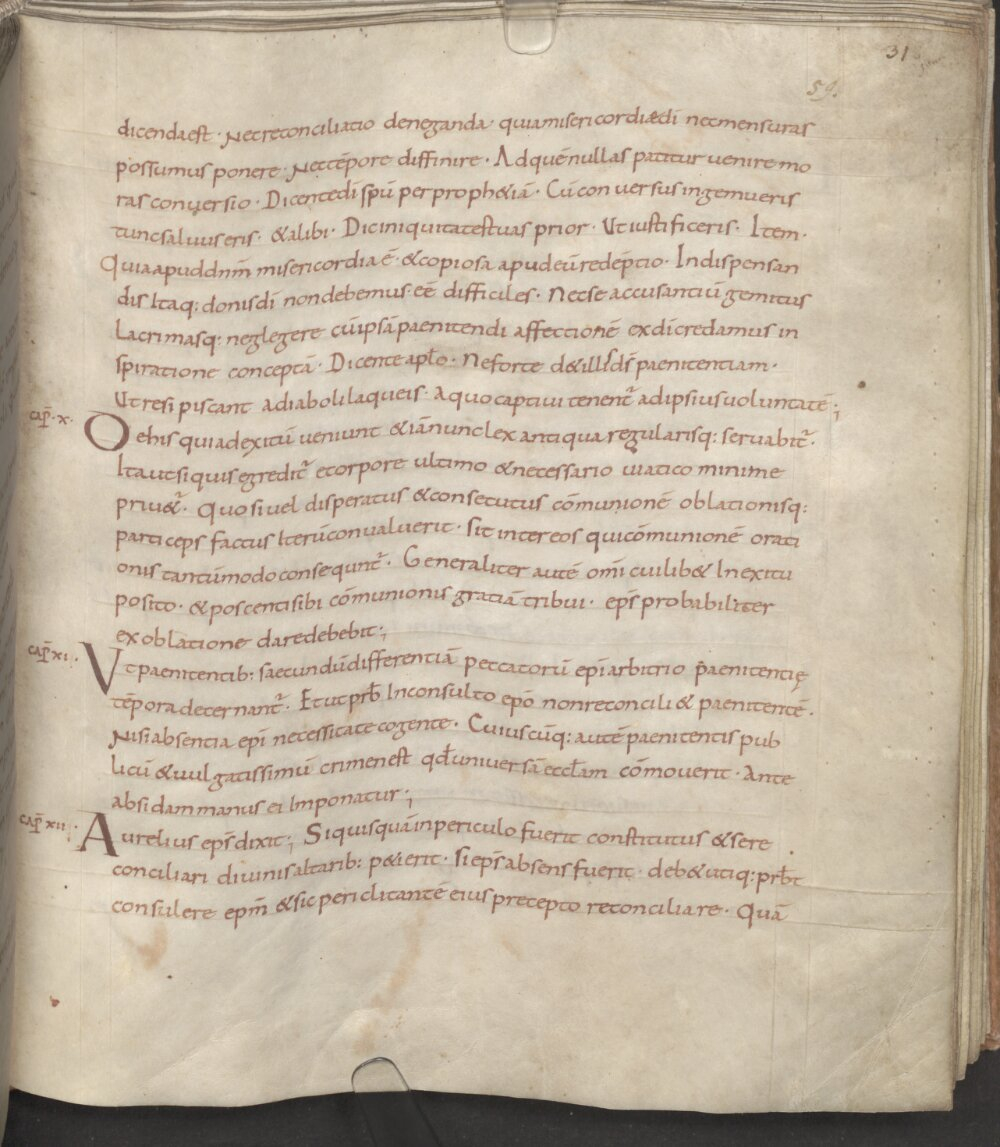 31
59.
dicenda est · Nec reconciliatio deneganda · quia misericordiae di nec mensuras
possumus ponere · Nec tēpore diffinire · Ad quē nullas patitur venire mo
ras conversio · Dicente di spū per prophetiā · Cū conversus ingemueris
tunc saluus eris · & alibi · Dic iniquitates tuas prior · Ut iustificeris · Item ·
Quia apud dnm̄ misericordia ē · & copiosa apud eū redēptio · In dispensan
dis Itaq: donis di non debemus · eē difficiles · Nec se accusantiū gemitus
Lacrimasq: neglegere cū ipsā paenitendi affectionē ex dī credamus in
spiratione conceptā · Dicente apl̄o · Ne forte det illis ds̄ paenitentiam ·
Ut resipiscant a diaboli laqueis · a quo captivi tenent̄ ad ipsius voluntatē ;
cap̄ · x · De his qui ad exitū veniunt & iā nunc lex antiqua regularisq: servabit̄ ·
Ita ut si quis egredit̄ e corpore ultimo & necessario viatico minime
privet̄ · Quo si vel disperatus & consecutus cōmunionē oblationisq:
particeps factus Iterū convaluerit · Sit inter eos qui cōmunionē orati
onis tantūmodo consequnt̄ · Generaliter autē omī cuilib& In exitu
posito · & poscenti sibi cōmunionis gratiā tribui · ep̄s probabiliter
ex oblatione dare debebit ;
cap̄ xi · Ut paenitentib: saecundū differentiā peccatorū ep̄i arbitrio paenitentię
tēpora decernant̄ · Et ut prb̄ Inconsulto ep̄o non reconciliet paenitentē ·
Nisi absentia ep̄i necessitate cogente · Cuiuscūq: autē paenitentis pub
licū & vulgatissimū crimen est qd̄ universā eccl̄am cōmoverit · Ante
absidam manus ei Imponatur ;
cap̄ xii · Aurelius ep̄s dixit ; Si quisquā in periculo fuerit constitutus & se re
conciliari divinis altarib: petierit · si ep̄s absens fuerit · deb& utiq: prb̄t
consulere ep̄m̄ & sic periclitantē eius precepto reconciliare · Quā